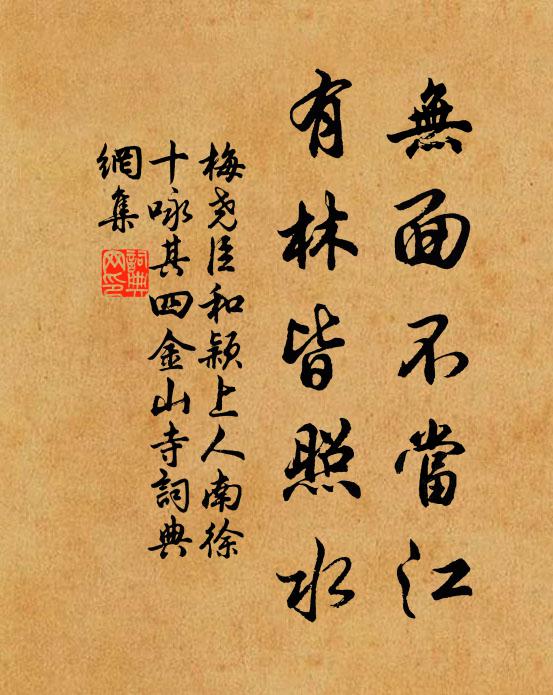 無面不當江
有林皆照水
梅堯臣和穎上人南徐
十咏其四金山寺詞典
網集
詞典
网印